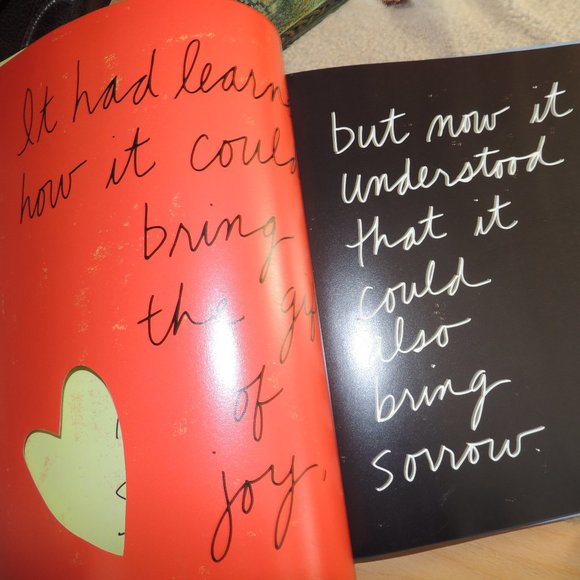 It had learn
how it could
bring
the gi
of
joy,
but now it
understood
that it
could
also
bring
sorrow.